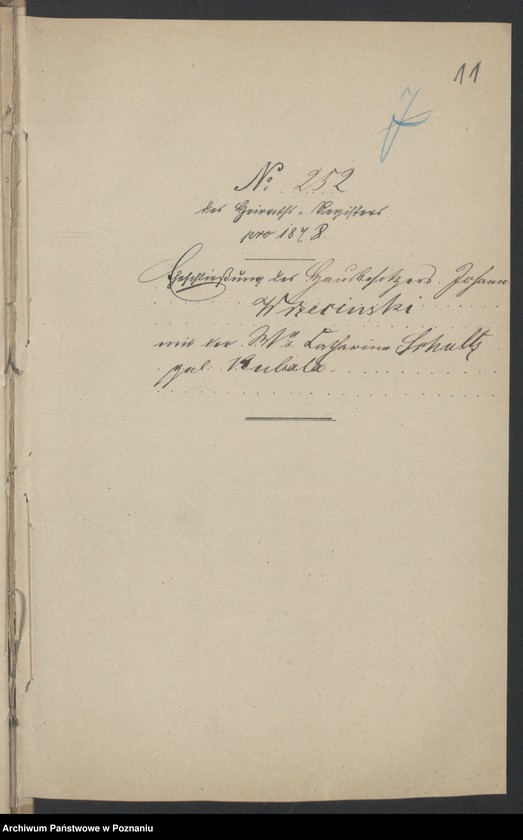 11
7
No 252
des Heiraths-Registers
pro 1878.
Eheschließung des Hausbesitzers Johann
Wrzecinski
mit der Wwe Catharina Schultz
geb. Kubala
Archiwum Państwowe w Poznaniu